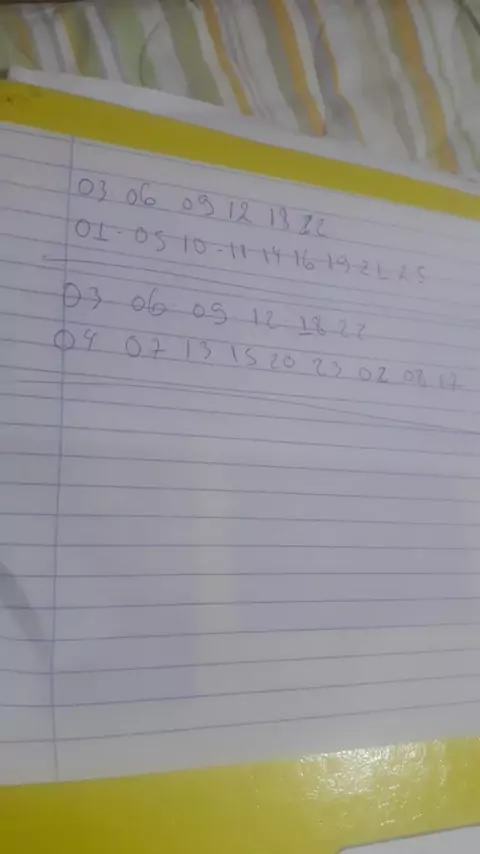 03 06 09 12 18 22
01 - 05 10 - 11 14 16 19 21 25
03 06 09 12 18 22
04 07 13 15 20 23 02 08 17